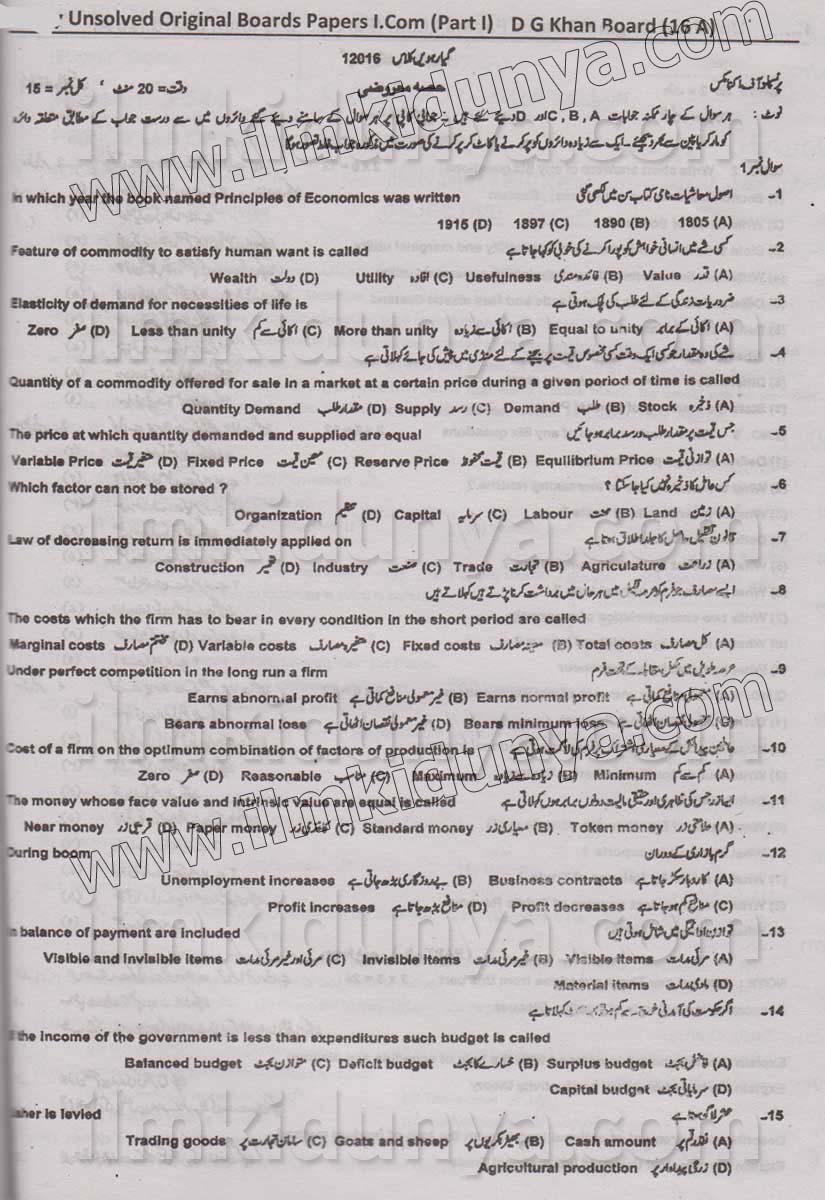 Unsolved Original Boards Papers I.Com (Part I) D G Khan Board (16 A)
12016 گیارہویں کلاس
پرنسپلز آف اکنامکس حصہ معروضی وقت = 20 منٹ ' کل نمبر = 15
نوٹ : ہر سوال کے چار ممکنہ جوابات C , B , A اور D دیئے گئے ہیں۔ جوابی کاپی پر ہر سوال کے سامنے دیئے گئے دائروں میں سے درست جواب کے مطابق متعلقہ دائرہ
کو مارکر یا پین سے بھر دیجئے۔ ایک سے زیادہ دائروں کو پُر کرنے یا کاٹ کر پُر کرنے کی صورت میں مذکورہ جواب غلط تصور ہوگا
سوال نمبر 1
1- اصول معاشیات نامی کتاب سن میں لکھی گئی In which year the book named Principles of Economics was written
1805 (A) 1890 (B) 1897 (C) 1915 (D)
2- کسی شے میں انسانی خواہش کو پورا کرنے کی خوبی کو کہا جاتا ہے Feature of commodity to satisfy human want is called
(A) قدر Value (B) فائدہ مندی Usefulness (C) افادہ Utility (D) دولت Wealth
3- ضروریات زندگی کے لئے طلب کی لچک ہوتی ہے Elasticity of demand for necessities of life is
(A) اکائی کے برابر Equal to unity (B) اکائی سے زیادہ More than unity (C) اکائی سے کم Less than unity (D) صفر Zero
4- شے کی وہ مقدار جو کسی ایک وقت کسی مخصوص قیمت پر بیچنے کے لئے منڈی میں پیش کی جائے کہلاتی ہے
Quantity of a commodity offered for sale in a market at a certain price during a given period of time is called
(A) ذخیرہ Stock (B) طلب Demand (C) رسد Supply (D) مقدار طلب Quantity Demand
5- جس قیمت پر مقدار طلب و رسد برابر ہو جائیں The price at which quantity demanded and supplied are equal
(A) توازنی قیمت Equilibrium Price (B) قیمت محفوظ Reserve Price (C) معین قیمت Fixed Price (D) متغیر قیمت Variable Price
6- کس عامل کا ذخیرہ نہیں کیا جا سکتا ؟ Which factor can not be stored ?
(A) زمین Land (B) محنت Labour (C) سرمایہ Capital (D) تنظیم Organization
7- قانون تقلیل حاصل کا جلد اطلاق ہوتا ہے Law of decreasing return is immediately applied on
(A) زراعت Agriculature (B) تجارت Trade (C) صنعت Industry (D) تعمیر Construction
8- ایسے مصارف جو فرم کو عرصہ قلیل میں ہر حال میں برداشت کرنا پڑتے ہیں کہلاتے ہیں
The costs which the firm has to bear in every condition in the short period are called
(A) کل مصارف Total costs (B) معینہ مصارف Fixed costs (C) متغیرہ مصارف Variable costs (D) مختتم مصارف Marginal costs
9- عرصہ طویل میں مکمل مقابلہ کے تحت فرم Under perfect competition in the long run a firm
(A) معمولی منافع کماتی ہے Earns normal profit (B) غیر معمولی منافع کماتی ہے Earns abnormal profit
(C) معمولی نقصان اٹھاتی ہے Bears minimum loss (D) غیر معمولی نقصان اٹھاتی ہے Bears abnormal lose
10- عاملین پیدائش کے معیاری اشتراک پر فرم کی لاگت ہوتی ہے Cost of a firm on the optimum combination of factors of production is
(A) کم سے کم Minimum (B) زیادہ سے زیادہ Maximum (C) مناسب Reasonable (D) صفر Zero
11- ایسا زر جس کی ظاہری اور حقیقی مالیت دونوں برابر ہوں کہلاتی ہے The money whose face value and intrinsic value are equal is called
(A) علامتی زر Token money (B) معیاری زر Standard money (C) کاغذی زر Paper money (D) قریبی زر Near money
12- گرم بازاری کے دوران During boom
(A) کاروبار سکڑ جاتا ہے Business contracts (B) بے روزگاری بڑھ جاتی ہے Unemployment increases
(C) منافع کم ہو جاتا ہے Profit decreases (D) منافع بڑھ جاتا ہے Profit increases
13- توازن ادائیگی میں شامل ہوتی ہیں balance of payment are included
(A) مرئی مدات Visible items (B) غیر مرئی مدات Invisible items (C) مرئی اور غیر مرئی مدات Visible and invisible items
(D) مادی مدات Material items
14- اگر حکومت کی آمدنی سے کم ہو کہلاتا ہے
the income of the government is less than expenditures such budget is called
(A) فاضل بجٹ Surplus budget (B) خسارے کا بجٹ Deficit budget (C) متوازن بجٹ Balanced budget
(D) سرمایاتی بجٹ Capital budget
15- عشر لاگو ہوتا ہے is levied
(A) نقد رقم پر Cash amount (B) بھیڑ بکریوں پر Goats and sheep (C) سامان تجارت پر Trading goods
(D) زرعی پیداوار پر Agricultural production
www.ilmkidunya.com
www.ilmkidunya.com
ilmkidunya.com
ilmkidunya.com
ilmkidunya.com
ilmkidunya.com
ilmkidunya.com
ilmkidunya.com